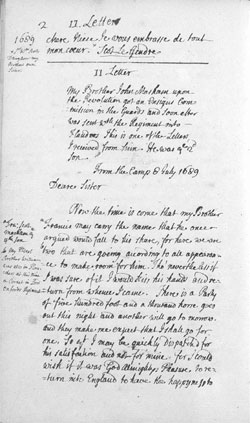 2 11. Letter
1689
chere Niece Je vous embrasse de tout
mon coeur." Scot Le Gendre
11 Letter
My Brother John Masham upon
the Revolution got an Ensigns Com
mission in the Guards and soon after
was sent with the Regiment into
Flanders This is one of the Letters
I received from him. He was 9th
Son
From the Camp 8 July 1689
Deare Sister
Now the time is come that my Brother
Francis may carry the name that he once
argued would fall to his share, for here we are
two that are going according to all appearan
ce to make room for him. The nevertheless if
I was sure of it I would kiss his hands and re
turn from whence I came. There is a Party
of five hundred foot and a thousand horse goes
out this night and another will go to morrow
and they make me expect that I shall go for
one. So yt I may be quickly dispatched for
his satisfaction and not for mine for I could
wish if it was God Almightys Pleasure To re
turn into England to have the happyness to